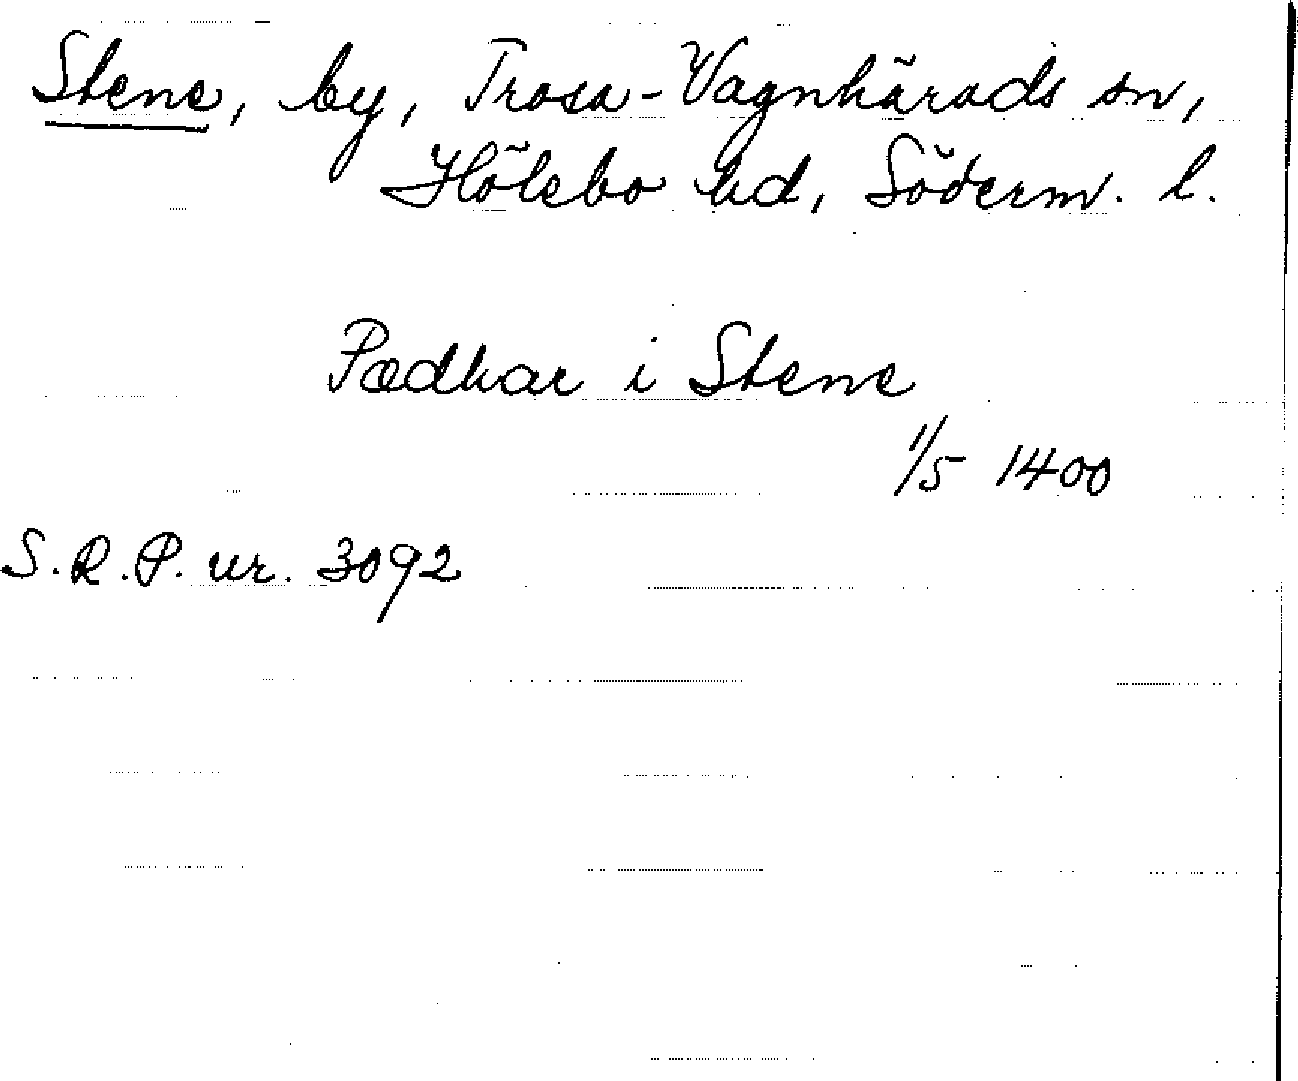 Stene, by, Trosa-Vagnhärads sn,
Hölebo hd, Söderm. l.
Pædhar i Stene
1/5 1400
S.R.P. nr. 3092